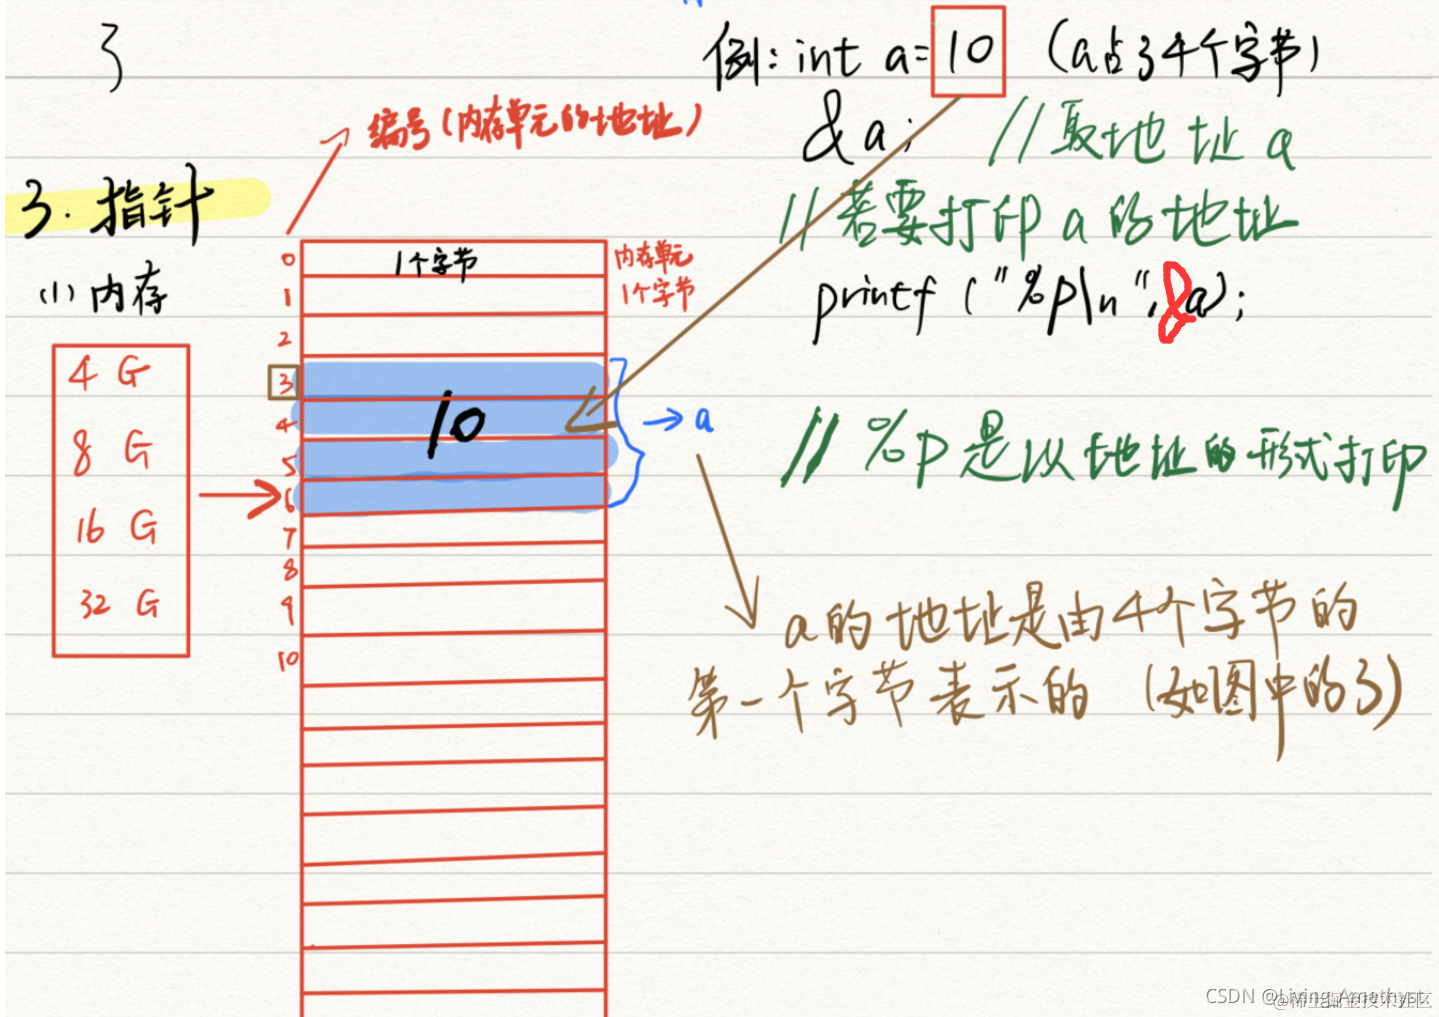 3
例: int a= 10 (a占了4个字节)
&a; //取地址a
//若要打印a的地址
printf ("%p\n", &a);
//%p是以地址的形式打印
编号(内存单元的地址)
3. 指针
(1) 内存
4 G
8 G
16 G
32 G
0
1
2
3
4
5
6
7
8
9
10
1个字节
内存单元
1个字节
10
a
a的地址是由4个字节的
第一个字节表示的 (如图中的3)
CSDN @Living_Amethyst
@稀土掘金技术社区